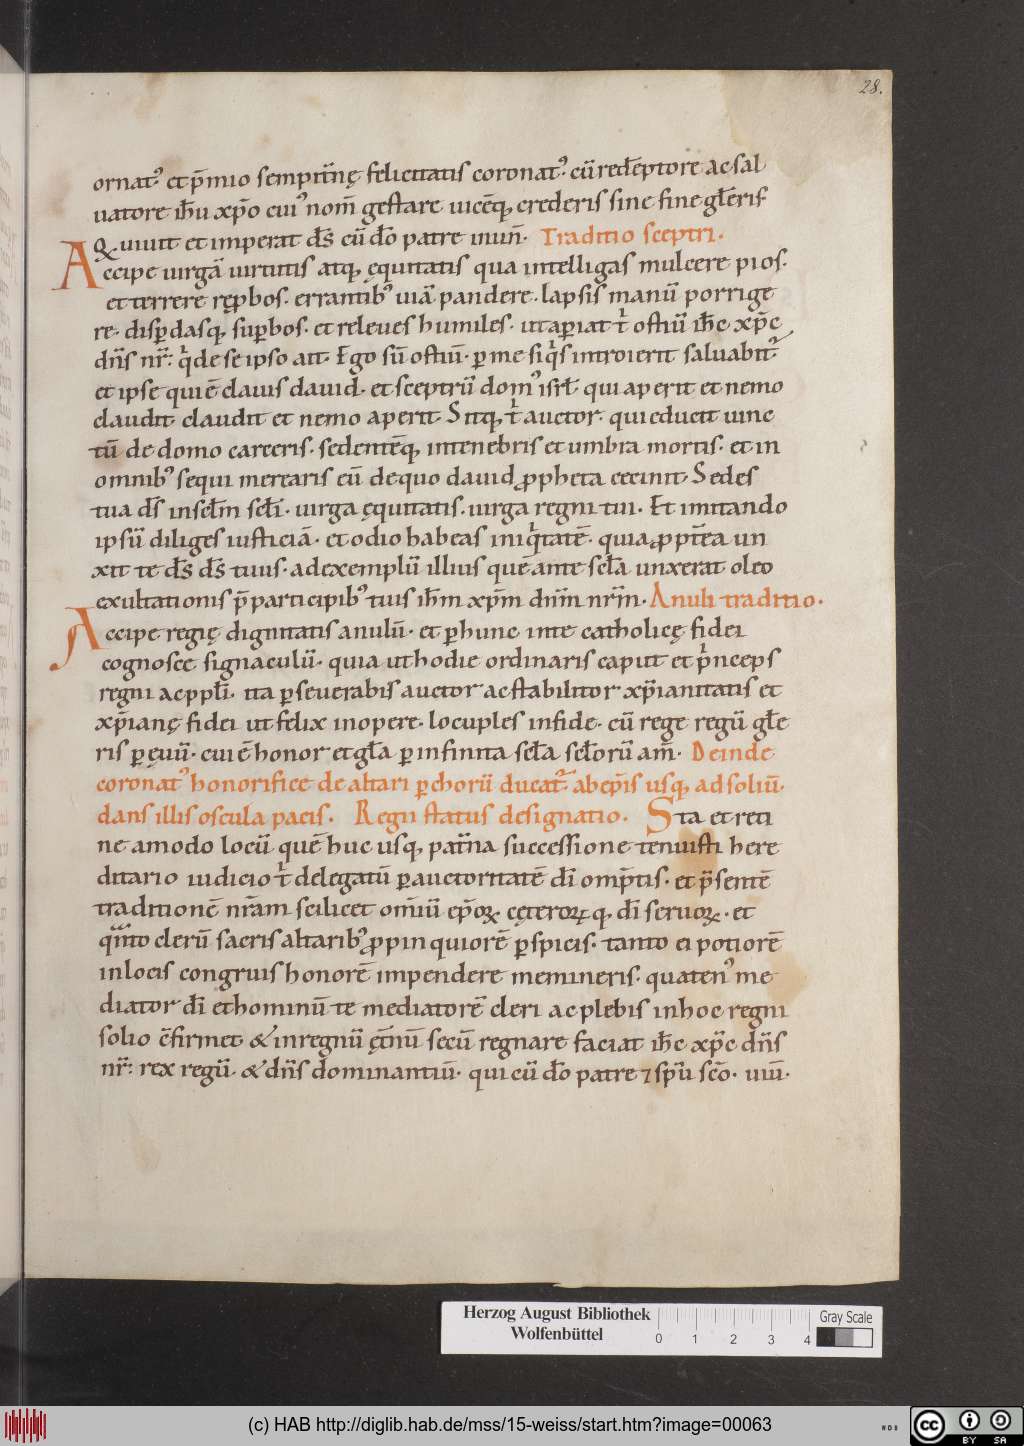 28.
ornat᾽ et p̄mio sempit̄nę felicitatis coronat᾽ cū red̄eptore ac sal
uatore ih̄u xp̄o cui᾽ nom̄ gestare uicēq; crederis sine fine gl̄eris
Q uiuit et imperat d̄s cū d̄o patre inun̄. Traditio sceptri.
Accipe uirgā uirtutis atq; ęquitatis qua intelligas mulcere pios.
et terrere rępbos. errantib᾽ uiā pandere. lapsis manū porrige
re. disp̲dasq; sup̲bos. et releues humiles. ut ap̲iat t̍ ostiū ih̄c xp̄c
dn̄s nr̄: q̍ de se ipso ait. Ego sū ostiū. p̲ me siq̍s introierit saluabit᾽
et ipse qui ē clauis dauid. et sceptrū dom᾽ isrl̄ qui aperit et nemo
claudit claudit et nemo aperit Sitq; t̍ auctor. qui educit uinc
tū de domo carceris. sedentēq; intenebris et umbra mortis. et in
omnib᾽ sequi merearis eū de quo dauid ꝓpheta cecinit. Sedes
tua d̄s insecl̄m secl̄i. uirga ęquitatis. uirga regni tui. Et imitando
ipsū diliges iusticiā. et odio habeas iniq̍tatē. quia ꝓpt̄ea un
xit te d̄s d̄s tuus. ad exemplū illius quē ante secl̄a unxerat oleo
exultationis p̄ participib᾽ tuis ih̄m xp̄m dn̄m nr̄m. Anuli traditio.
Accipe regię dignitatis anulū. et p̲ hunc inte catholicę fidei
cognosce signaculū. quia ut hodie ordinaris caput et p̍nceps
regni ac ppl̄i. ita p̲seuerabis auctor ac stabilitor xp̄ianitatis et
xp̄ianę fidei ut felix inopere. locuples infide. cū rege regū gl̄e
ris p̲ ęuū. cui ē honor et gl̄a p̲ infinita secl̄a secl̄orū am̄. Deinde
coronat᾽ honorifice de altari p̲ chorū ducat᾽ ab ep̄is usq; ad soliū.
dans illis oscula pacis. Regii status designatio. Sta et reti
ne amodo locū quē huc usq; pat̄na successione tenuisti here
ditario iudicio t̍ delegatū p̲ auctoritatē d̄i omp̄tis. et p̄sentē
traditionē nr̄am scilicet om̄iū ep̄oꝝ cęteroꝝq; d̄i seruoꝝ. et
qnͣto clerū sacris altarib᾽ ꝓpinquiorē p̲spicis. tanto ei potiorē
inlocis congruis honorē impendere memineris. quaten᾽ me
diator d̄i et hominū te mediatorē cleri ac plebis inhoc regni
solio c̄firmet & inregnū ęt̄nū secū regnare faciat ih̄c xp̄c dn̄s
nr̄: rex regū. & dn̄s dominantiū. qui cū d̄o patre ⁊ sp̄u sc̄o. uiū.
Herzog August Bibliothek
Wolfenbüttel
0 1 2 3 4
Gray Scale
(c) HAB http://diglib.hab.de/mss/15-weiss/start.htm?image=00063
cc BY SA